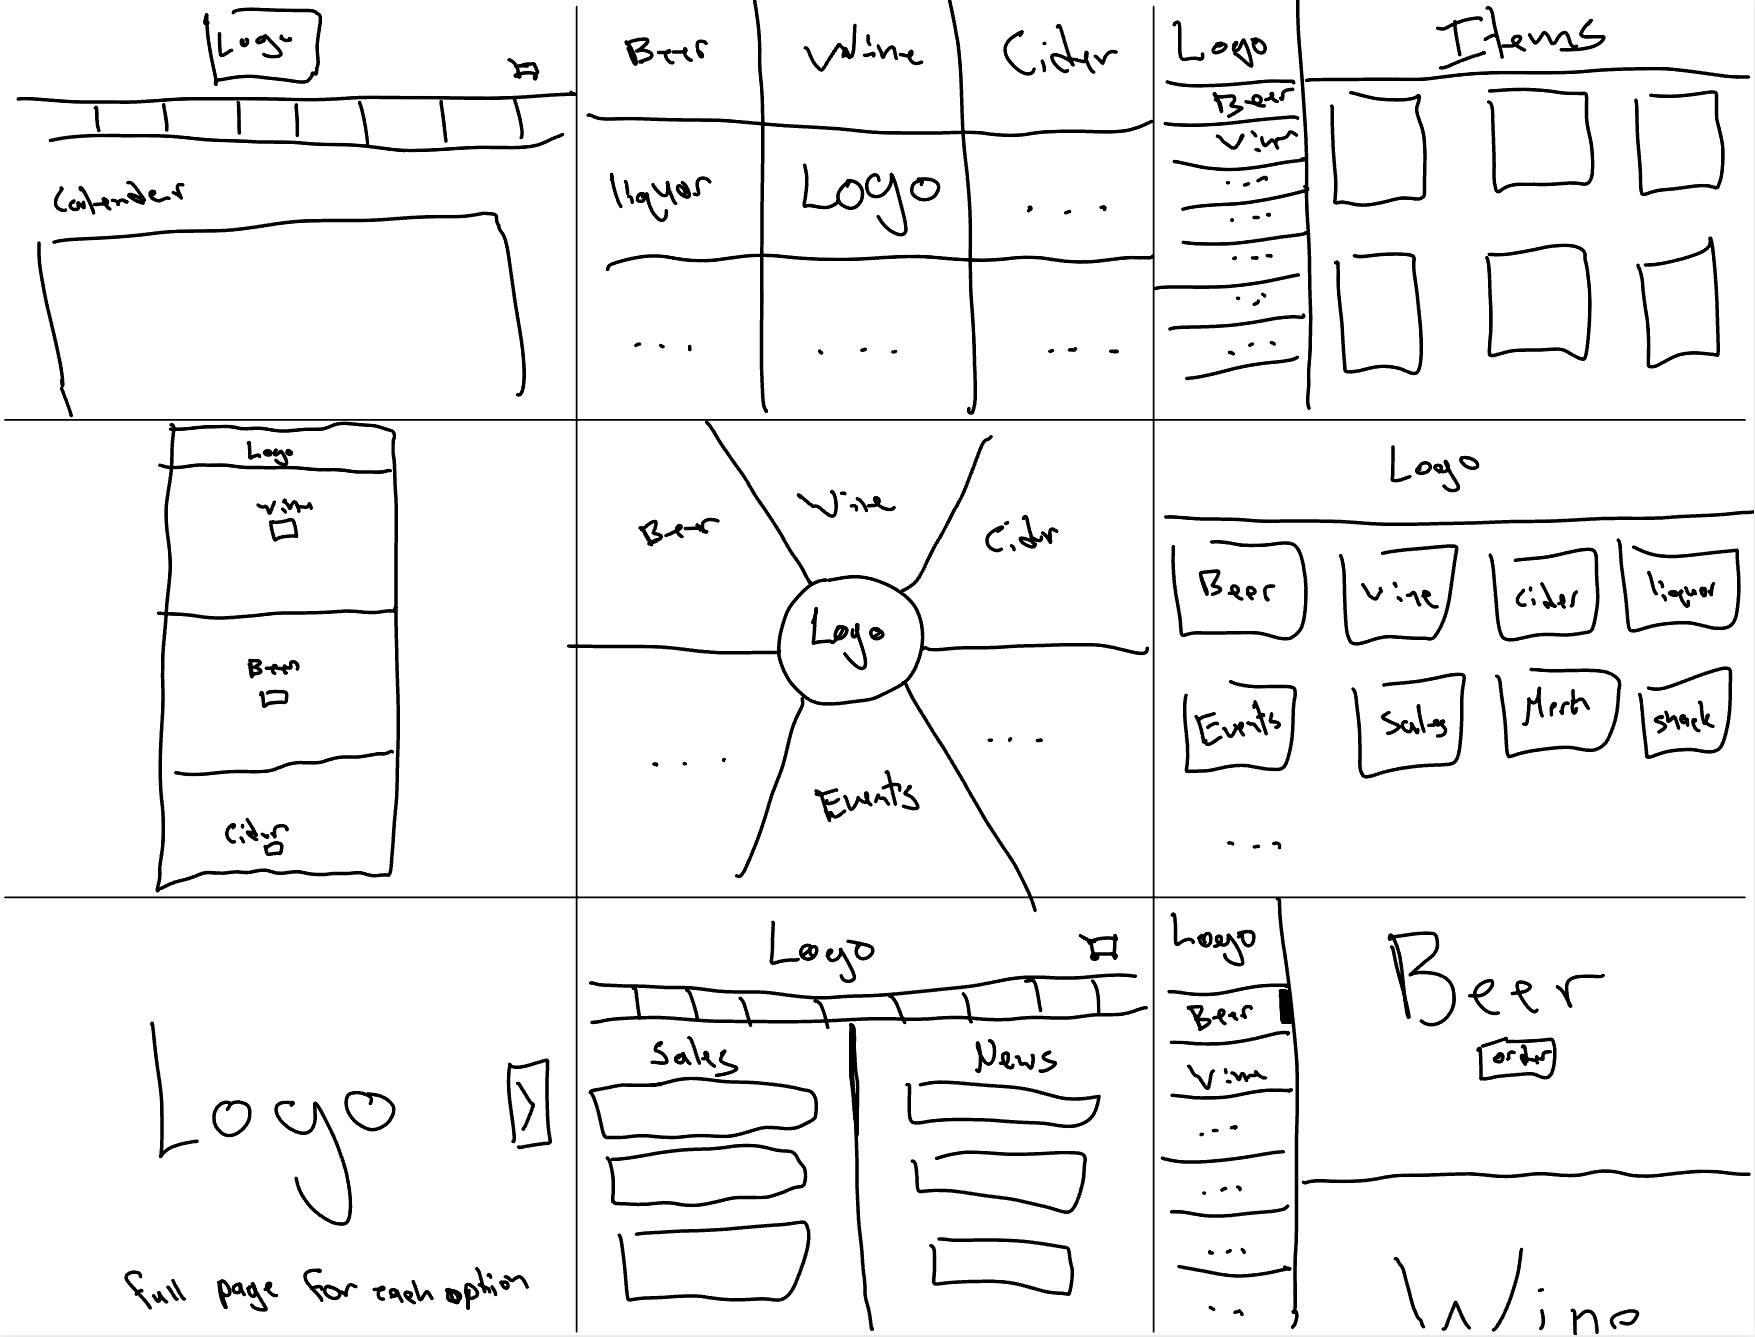 Logo
Calender
Beer
Wine
Cider
liquor
Logo
. . .
. . .
. . .
. . .
Logo
Items
Beer
Wine
...
...
...
...
...
Logo
Wine
Beer
Cider
Beer
Wine
Cider
Logo
. . .
. . .
Events
Logo
Beer
Wine
Cider
liquor
Events
Sales
Merch
snack
...
Logo
>
full page for each option
Logo
Sales
News
Logo
Beer
Wine
...
...
...
...
Beer
order
Wine